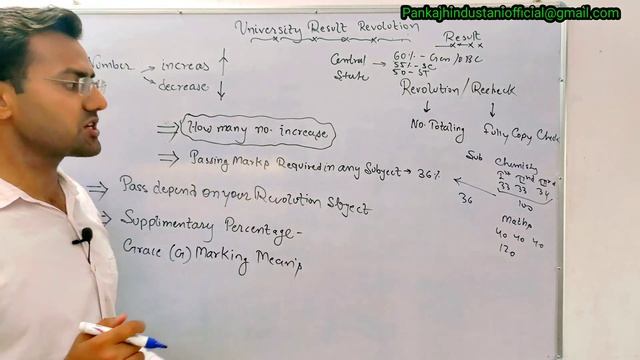 Pankajhindustaniofficial@gmail.com
University Result Revolution
Result
Number → increas ↑
→ decrease ↓
Central
State → 60% - Gen/OBC
55% - SC
50 - ST
Revolution / Recheck
No. Totaling
Fully Copy Check
⇒ How many no. increase
⇒ Passing Marks Required in any Subject → 36%
Sub Chemistry
Ist IInd IIIrd
33 33 34
100
36
⇒ Pass depend on your Revolution Sbject
Maths
40 40 40
120
⇒ Supplimentary Percentage -
Grace (G) Marking Mean's